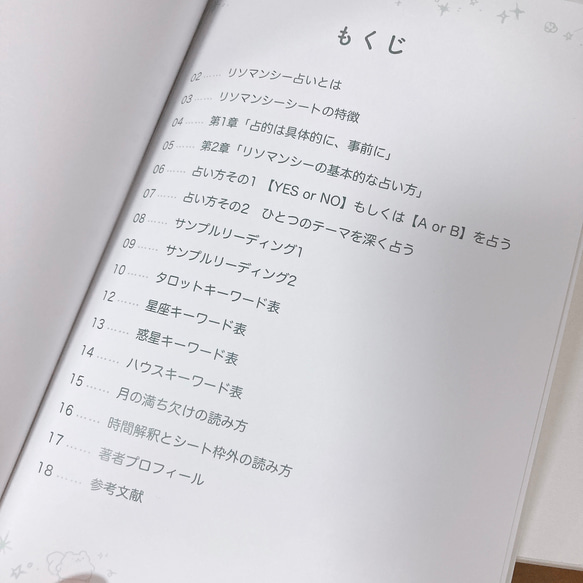 もくじ
02……リソマンシー占いとは
03……リソマンシーシートの特徴
04……第1章「占的は具体的に、事前に」
05……第2章「リソマンシーの基本的な占い方」
06……占い方その1 【YES or NO】もしくは【A or B】を占う
07……占い方その2 ひとつのテーマを深く占う
08……サンプルリーディング1
09……サンプルリーディング2
10……タロットキーワード表
12……星座キーワード表
13……惑星キーワード表
14……ハウスキーワード表
15……月の満ち欠けの読み方
16……時間解釈とシート枠外の読み方
17……著者プロフィール
18……参考文献